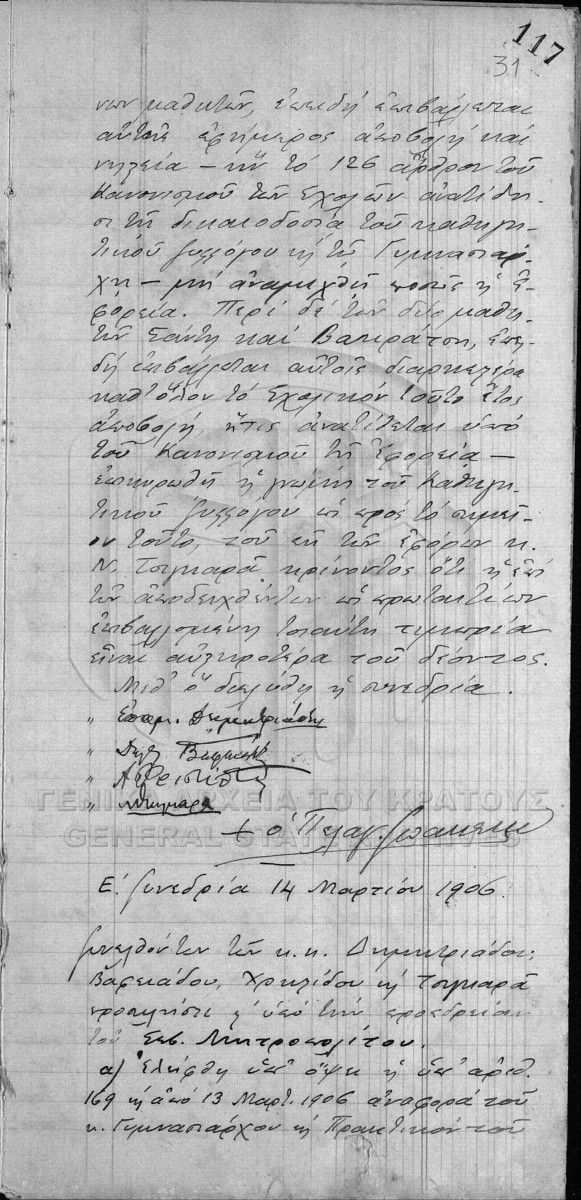 117
31
νων μαθητῶν, ἐπειδὴ ἐπιβάλλεται
αὐτοῖς ἐφήμερος ἀποβολὴ καὶ
νηστεία – ἣν τὸ 126 ἄρθρον τοῦ
Κανονισμοῦ τῶν Σχολῶν ἀνατίθη-
σι τῇ δικαιοδοσίᾳ τοῦ καθηγη-
τικοῦ Συλλόγου κ τῇ Γυμνασιάρ-
χῃ – μὴ ἀναμιχθῇ ποσῶς ἡ Ἐ-
φορεία. Περὶ δὲ τῶν δύο μαθη-
τῶν Σάντη καὶ Βαπεράτση, ἐπει-
δὴ ἐπιβάλλεται αὐτοῖς διαρκεστέρα
καθ' ὅλον τὸ Σχολικὸν τοῦτο ἔτος
ἀποβολή, ἥτις ἀνατίθεται ὑπὸ
τοῦ Κανονισμοῦ τῇ Ἐφορείᾳ –
ἐπικυρωθῇ ἡ γνώμη τοῦ Καθηγη-
τικοῦ Συλλόγου ὡς πρὸς τὸ σημεῖ-
ον τοῦτο, τοῦ ἐκ τῶν ἐφόρων κ.
Ν. Τσιγκαρᾶ κρίνοντος ὅτι ἡ ἐπὶ
τῶν ἀποδειχθέντων ὡς πρωταιτίων
ἐπιβαλλομένη τοιαύτη τιμωρία
εἶναι αὐστηροτέρα τοῦ δέοντος.
Μεθ' ὃ διελύθη ἡ συνεδρία.
" Δημητριάδης
"
"
"
ΓΕΝΙΚΑ ΑΡΧΕΙΑ ΤΟΥ ΚΡΑΤΟΥΣ
GENERAL STATE ARCHIVES
+ ὁ Πελαγ. Ἰωακεὶμ
Ε΄. Συνεδρία 14 Μαρτίου 1906
Συνελθόντων τῶν κ.κ. Δημητριάδου,
Βαφειάδου, Χρηστίδου κ Τσιγκαρᾶ
προσκλήσει κ ὑπὸ τὴν προεδρείαν
τοῦ Σεβ. Μητροπολίτου.
α) Ἐλήφθη ὑπ' ὄψει ἡ ὑπ' ἀριθ.
169 κ ἀπὸ 13 Μαρτ. 1906 ἀναφορὰ τοῦ
κ. Γυμνασιάρχου κ Πρακτικὸν τοῦ